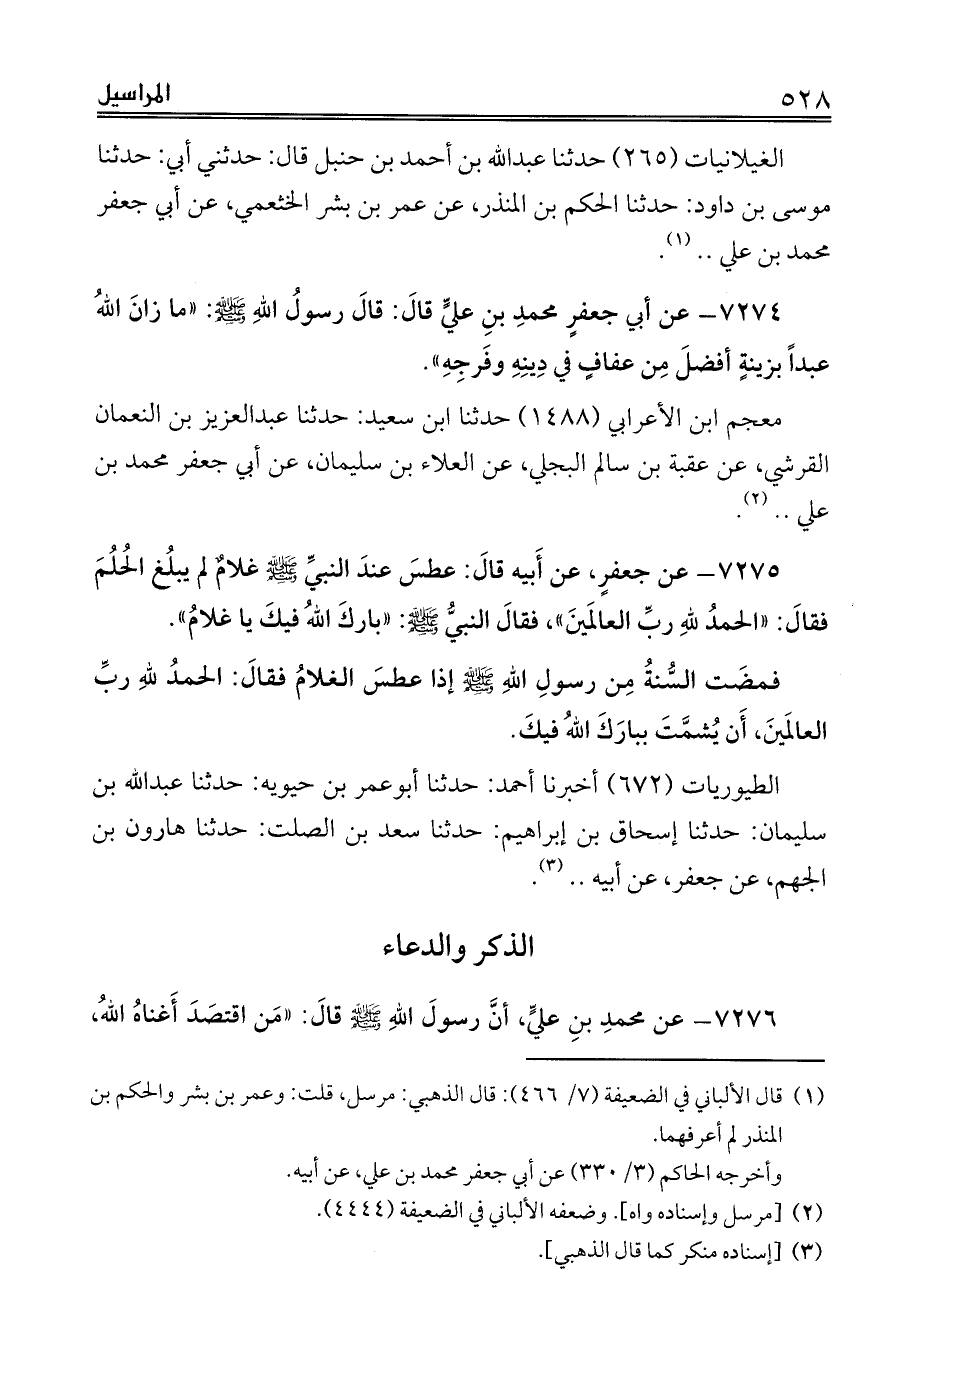 ٥٢٨ المراسيل
الغيلانيات (٢٦٥) حدثنا عبدالله بن أحمد بن حنبل قال: حدثني أبي: حدثنا
موسى بن داود: حدثنا الحكم بن المنذر، عن عمر بن بشر الخثعمي، عن أبي جعفر
محمد بن علي .. (١).
٧٢٧٤- عن أبي جعفرٍ محمدِ بنِ عليٍّ قالَ: قالَ رسولُ اللهِ ﷺ: «ما زانَ اللهُ
عبداً بزينةٍ أفضلَ مِن عفافٍ في دِينِهِ وفَرجِهِ».
معجم ابن الأعرابي (١٤٨٨) حدثنا ابن سعيد: حدثنا عبدالعزيز بن النعمان
القرشي، عن عقبة بن سالم البجلي، عن العلاء بن سليمان، عن أبي جعفر محمد بن
علي .. (٢).
٧٢٧٥- عن جعفرٍ، عن أَبيه قالَ: عطسَ عندَ النبيِّ ﷺ غلامٌ لم يبلُغ الحُلُمَ
فقالَ: «الحمدُ للهِ ربِّ العالَمينَ»، فقالَ النبيُّ ﷺ: «باركَ اللهُ فيكَ يا غلامُ».
فمضَت السُّنةُ مِن رسولِ اللهِ ﷺ إذا عطسَ الغلامُ فقالَ: الحمدُ للهِ ربِّ
العالَمينَ، أَن يُشمَّتَ ببارَكَ اللهُ فيكَ.
الطيوريات (٦٧٢) أخبرنا أحمد: حدثنا أبوعمر بن حيويه: حدثنا عبدالله بن
سليمان: حدثنا إسحاق بن إبراهيم: حدثنا سعد بن الصلت: حدثنا هارون بن
الجهم، عن جعفر، عن أبيه .. (٣).
الذكر والدعاء
٧٢٧٦- عن محمدِ بنِ عليٍّ، أنَّ رسولَ اللهِ ﷺ قالَ: «مَن اقتصَدَ أَغناهُ اللهُ،
(١) قال الألباني في الضعيفة (٧/ ٤٦٦): قال الذهبي: مرسل، قلت: وعمر بن بشر والحكم بن
المنذر لم أعرفهما.
وأخرجه الحاكم (٣/ ٣٣٠) عن أبي جعفر محمد بن علي، عن أبيه.
(٢) [مرسل وإسناده واه]. وضعفه الألباني في الضعيفة (٤٤٤٤).
(٣) [إسناده منكر كما قال الذهبي].